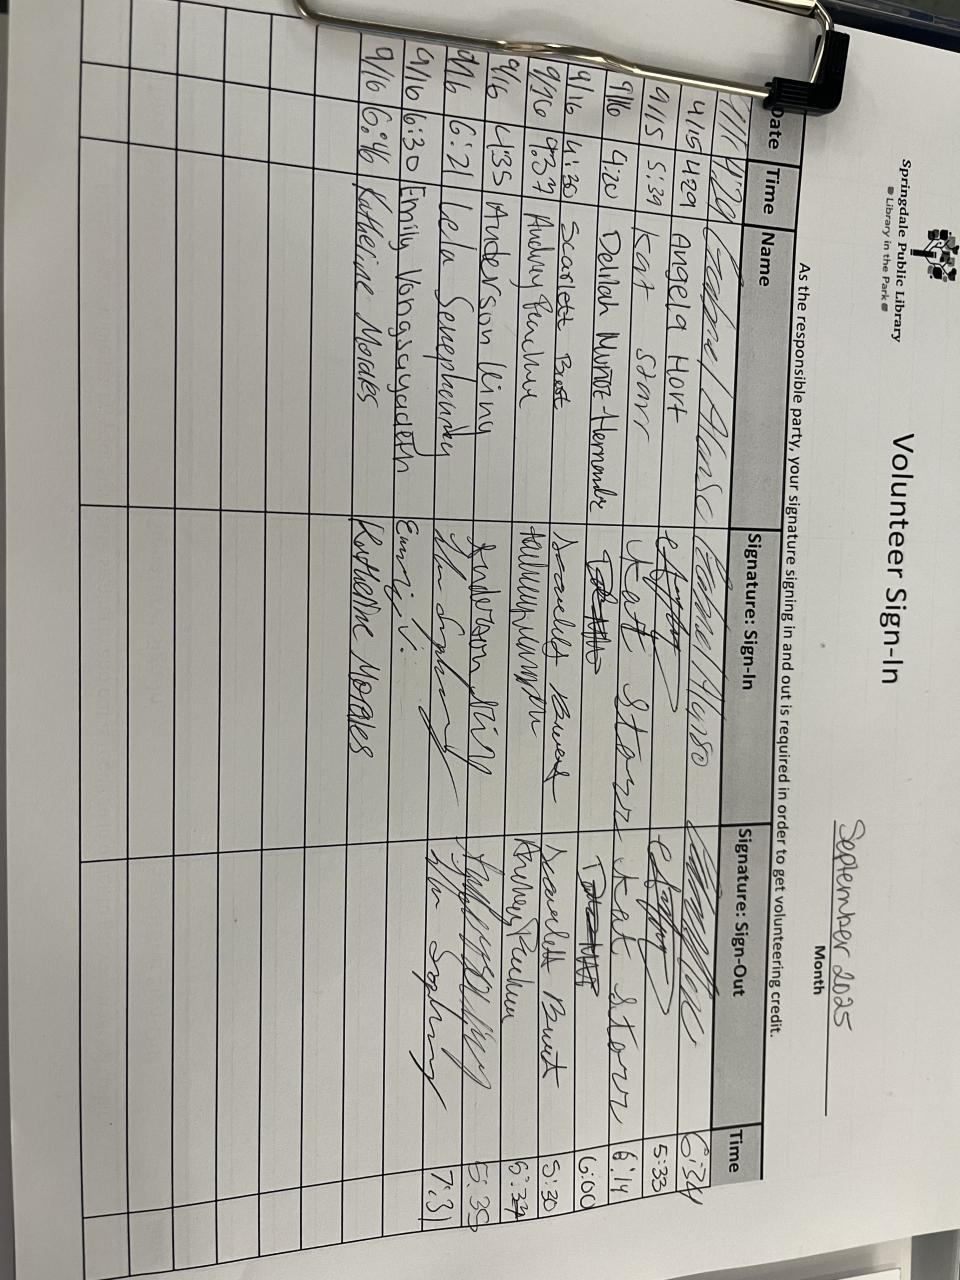 Springdale Public Library
Library in the Park
Volunteer Sign-In
September 2025
Month
As the responsible party, your signature signing in and out is required in order to get volunteering credit.
Date Time Name Signature: Sign-In Signature: Sign-Out Time
4:29 Alonso Alonso 6:34
9/15 4:29 Angela Hort 5:33
9/15 5:39 Kat Starr Kat Starr Kat Starr 6:14
9/16 4:20 Delilah Munoz-Hernandez 6:00
9/16 4:30 Scarlett Scarlett Scarlett 5:30
9/16 Audrey Audrey
9/16 4:35 Anderson King Anderson King 5:35
9/16 6:21 Lela 7:31
9/16 6:30 Emily Vongsayadeth Emily V.
9/16 6:46 Katherine Morales Katherine Morales